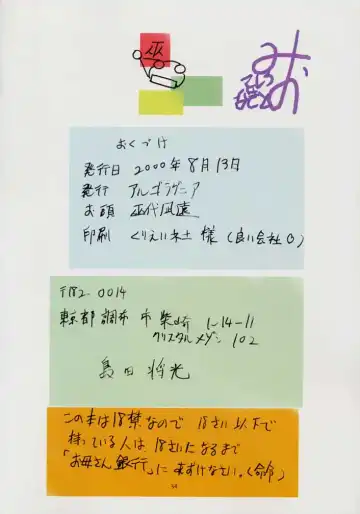 巫
みお
おくづけ
発行日 2000年8月13日
発行 アルゴラグニア
お頭 巫代凪遠
印刷 くりえい社 様 (良い会社 )
〒182-0014
東京都調布市柴崎 1-14-11
クリスタルメゾン 102
島田 将光
この本は18禁なので 18さい以下で
持っている人は、18さいになるまで
「お母さん銀行」に あずけなさい。(命令)
34